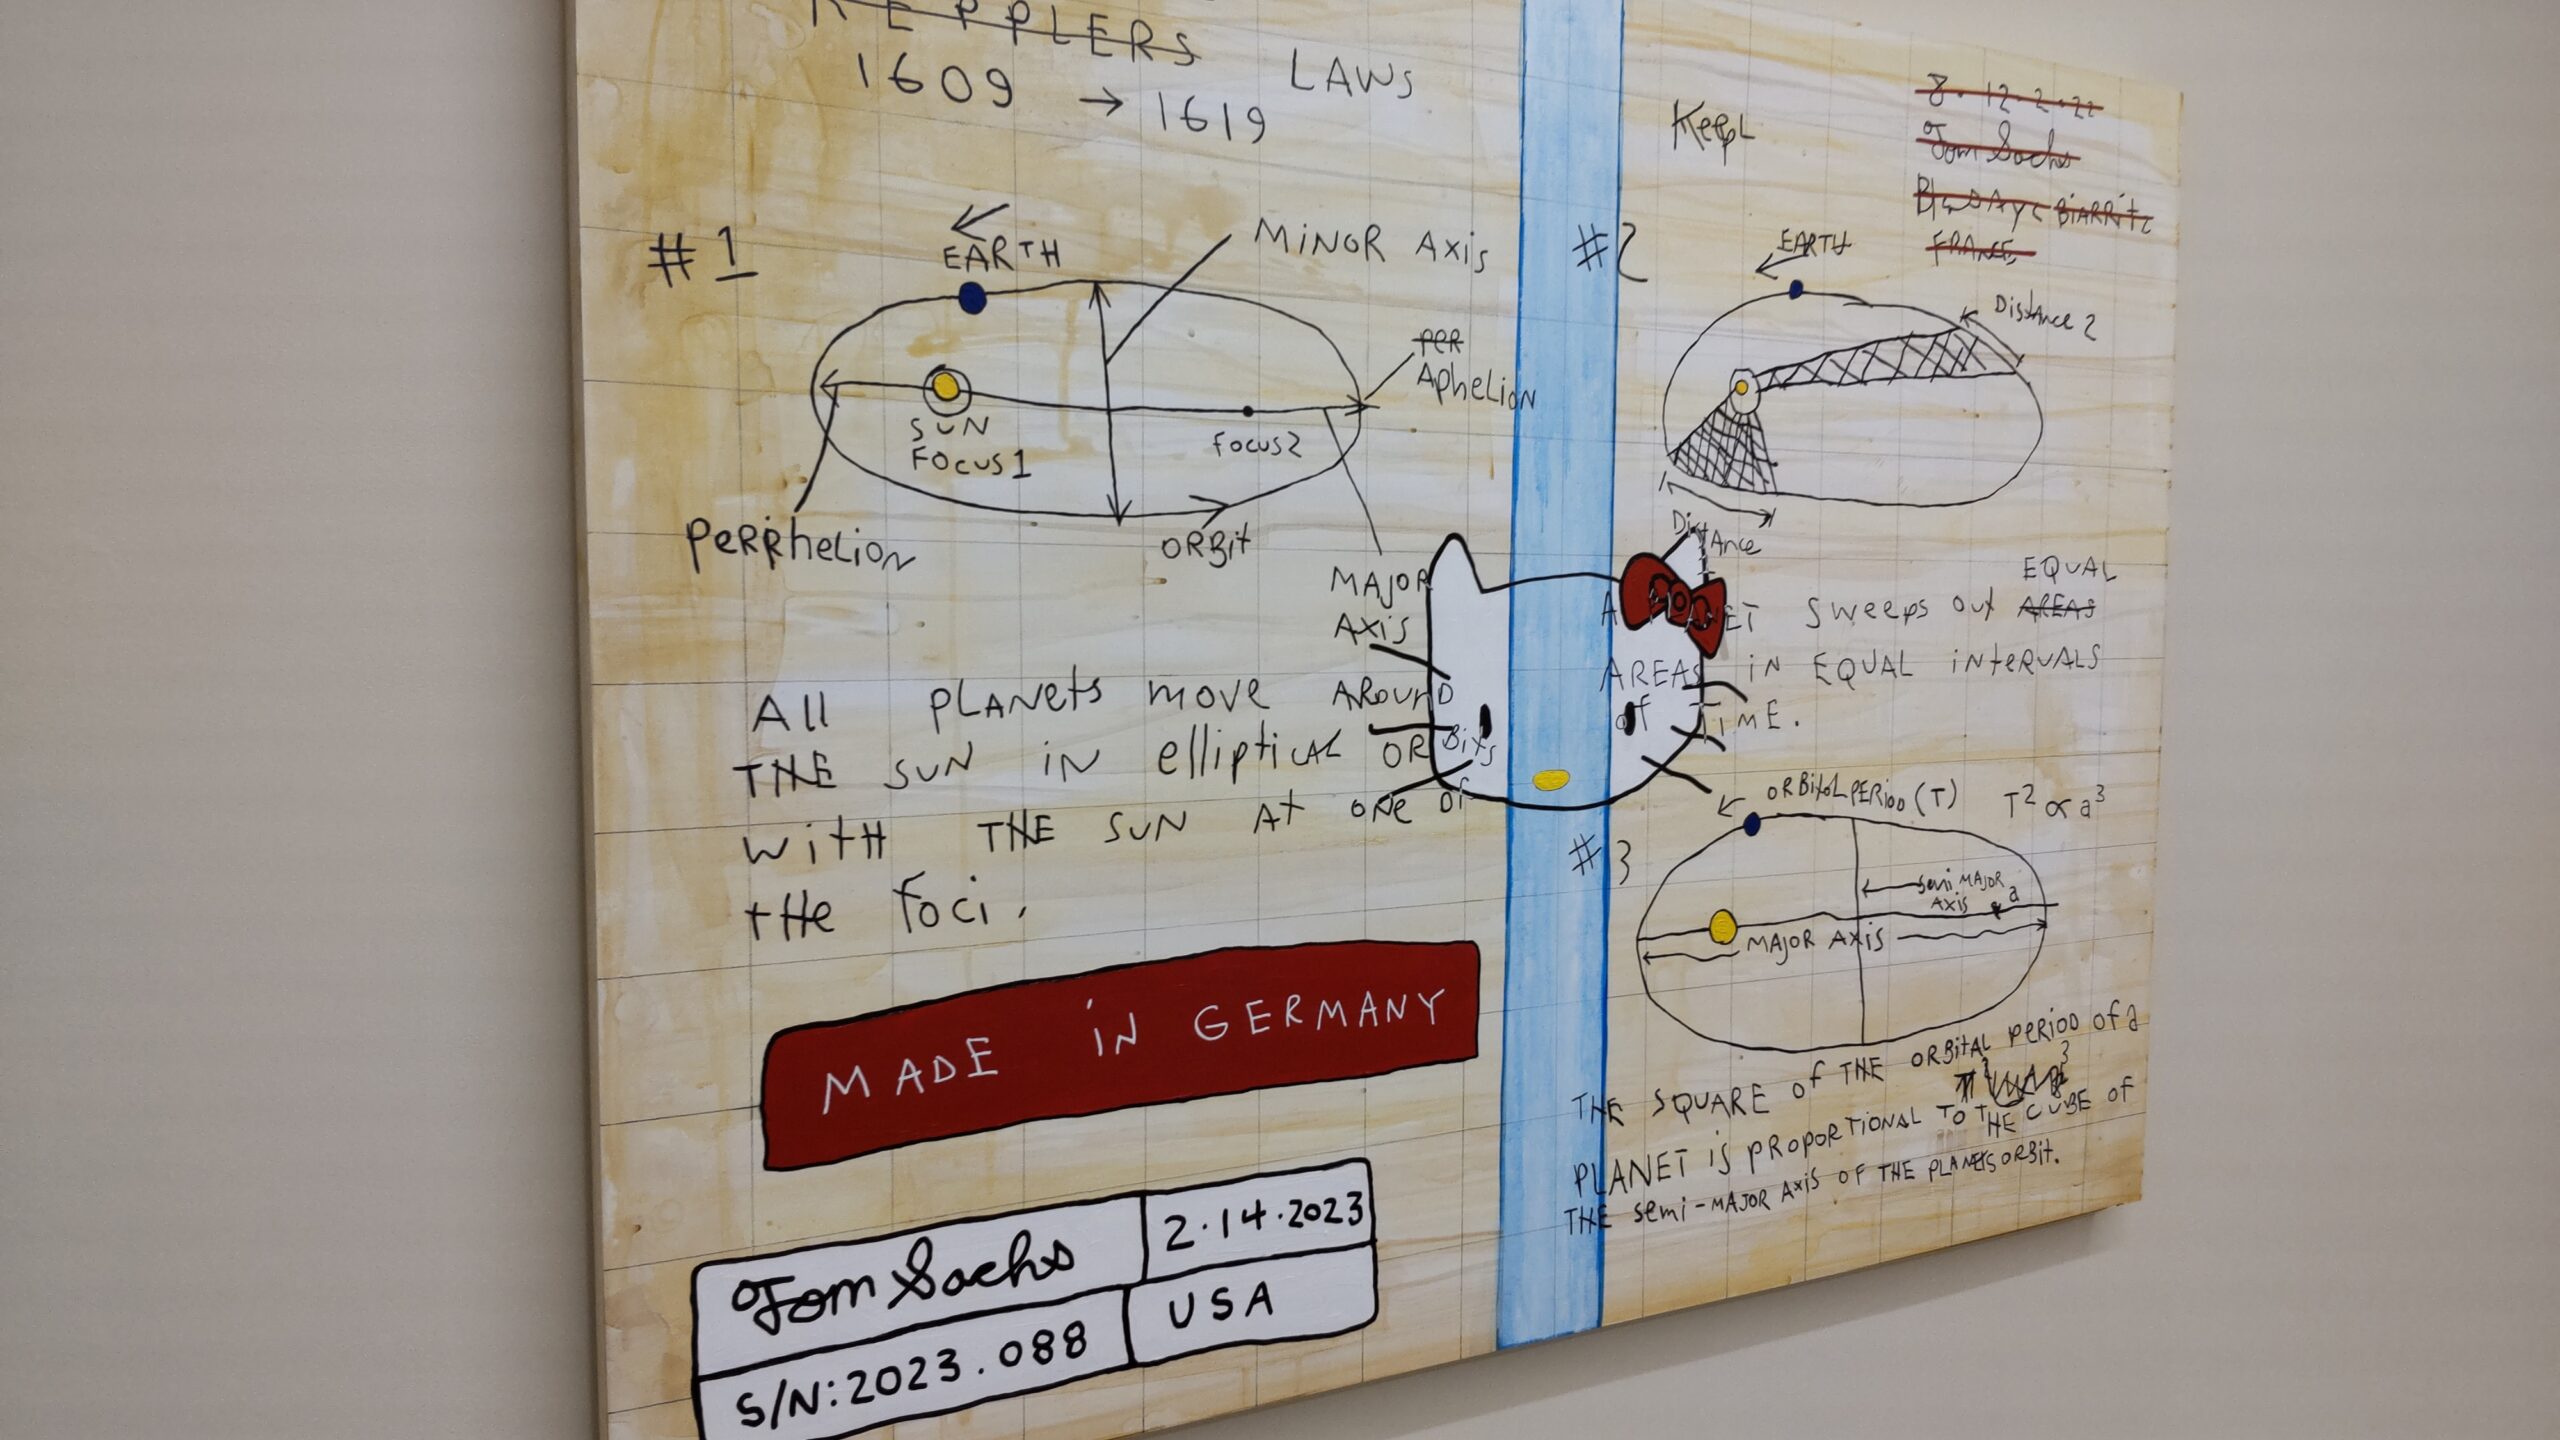 KEPPLERS
LAWS
1609 → 1619
#1
EARTH
MINOR AXIS
PER
APHELION
SUN
FOCUS 1
FOCUS 2
PERRHELION
ORBIT
MAJOR
AXIS
All PLANETS MOVE AROUND
THE SUN IN elliptical ORBITS
WITH THE SUN AT ONE OF
THE FOCI.
MADE IN GERMANY
Tom Sachs
2.14.2023
S/N:2023.088
USA
KEPPL
8.12.2.22
Tom Sachs
BIARRITZ
FRANCE
#2
EARTH
DISTANCE 2
DISTANCE
EQUAL
A PLANET SWEEPS OUT AREAS
AREAS IN EQUAL INTERVALS
OF TIME.
ORBITOL PERIOD (T) T² ∝ a³
#3
SEMI MAJOR
AXIS a
MAJOR AXIS
THE SQUARE OF THE ORBITAL PERIOD OF A
PLANET IS PROPORTIONAL TO THE CUBE OF
THE SEMI-MAJOR AXIS OF THE PLANETS ORBIT.